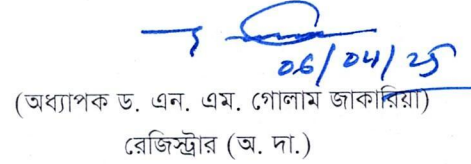 06/04/25
(অধ্যাপক ড. এন. এম. গোলাম জাকারিয়া)
রেজিস্ট্রার (অ. দা.)